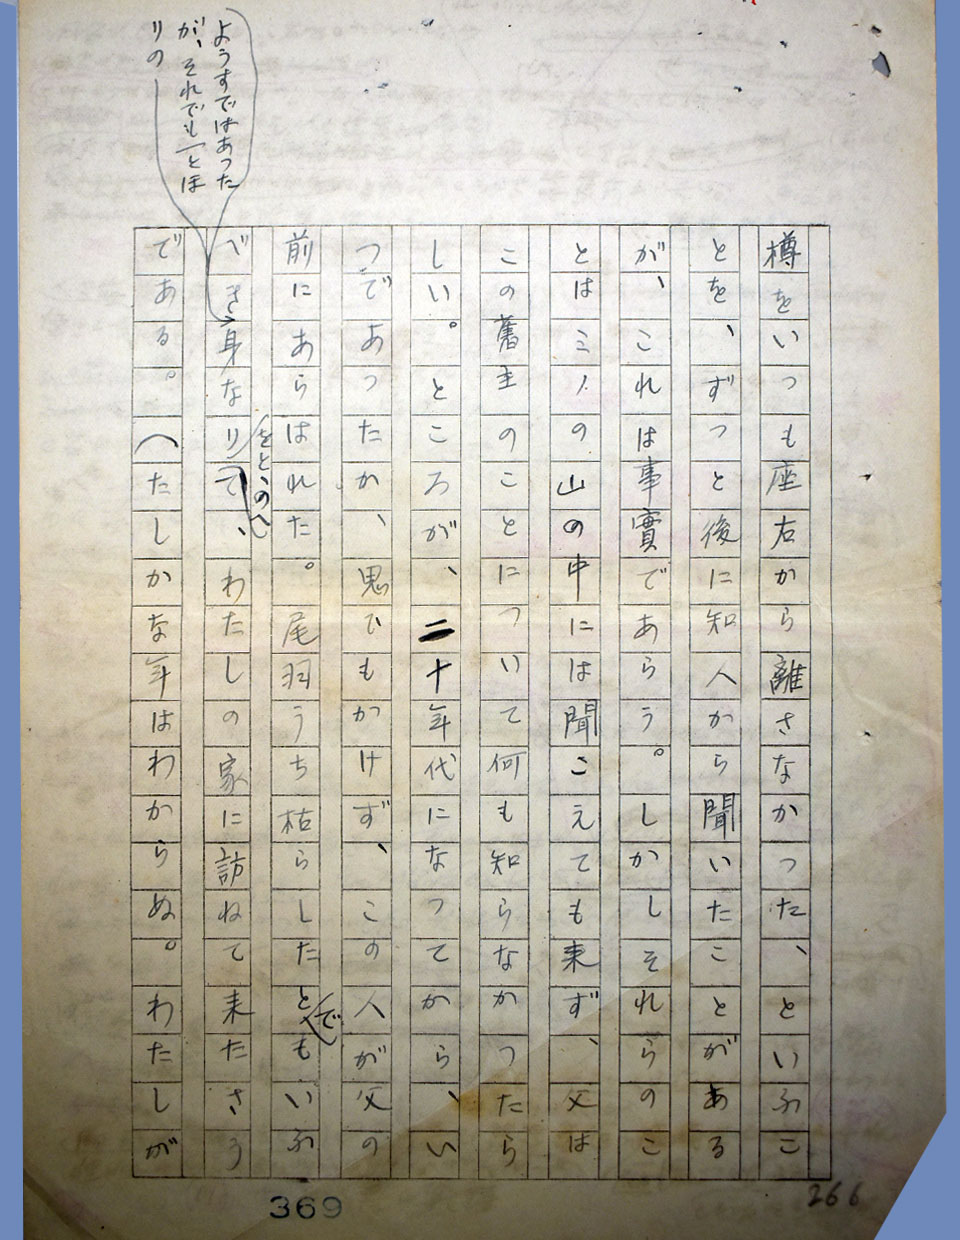 樽をいつも座右から離さなかつた、といふこ
とを、ずつと後に知人から聞いたことがある
が、これは事實であらう。しかしそれらのこ
とはミノの山の中には聞こえても来ず、父は
この舊主のことについて何も知らなかつたら
しい。ところが、二十年代になつてから、い
つであつたか、思でもかけず、この人が父の
前にあらはれた。尾羽うち枯らしたとでもいふ
べき身なりをとゝのへて、わたしの家に訪ねて来たさう
である。(たしかな年はわからぬ。わたしが
ようすではあつた
が、それでも一とほ
りの
369
266